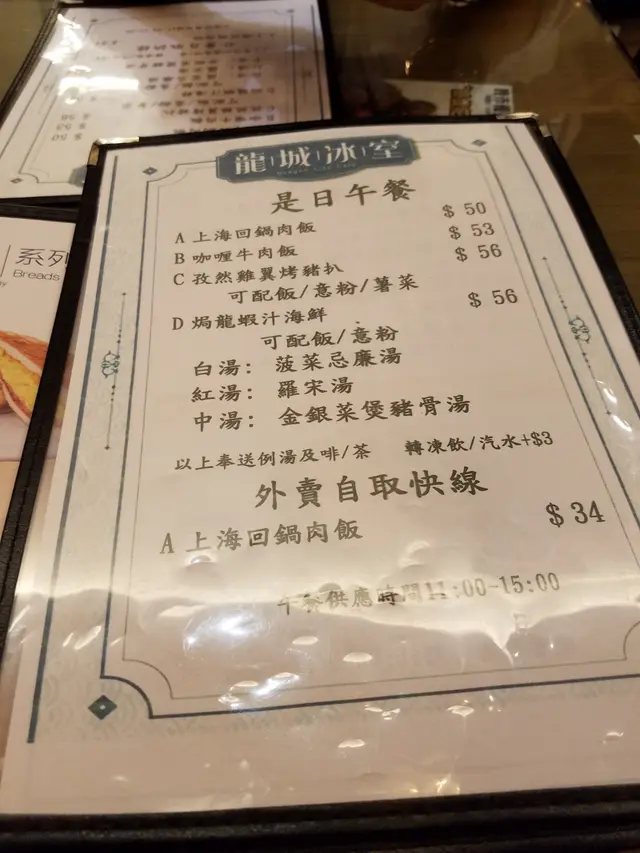 龍城冰室
是日午餐
A 上海回鍋肉飯 $50
B 咖喱牛肉飯 $53
C 孜然雞翼烤豬扒 $56
可配飯/意粉/薯菜
D 焗龍蝦汁海鮮 $56
可配飯/意粉
白湯: 菠菜忌廉湯
紅湯: 羅宋湯
中湯: 金銀菜煲豬骨湯
以上奉送例湯及啡/茶 轉凍飲/汽水+$3
外賣自取快線
A 上海回鍋肉飯 $34
午餐供應時間11:00-15:00
系列
Breads
$ 50
$ 53
$ 58